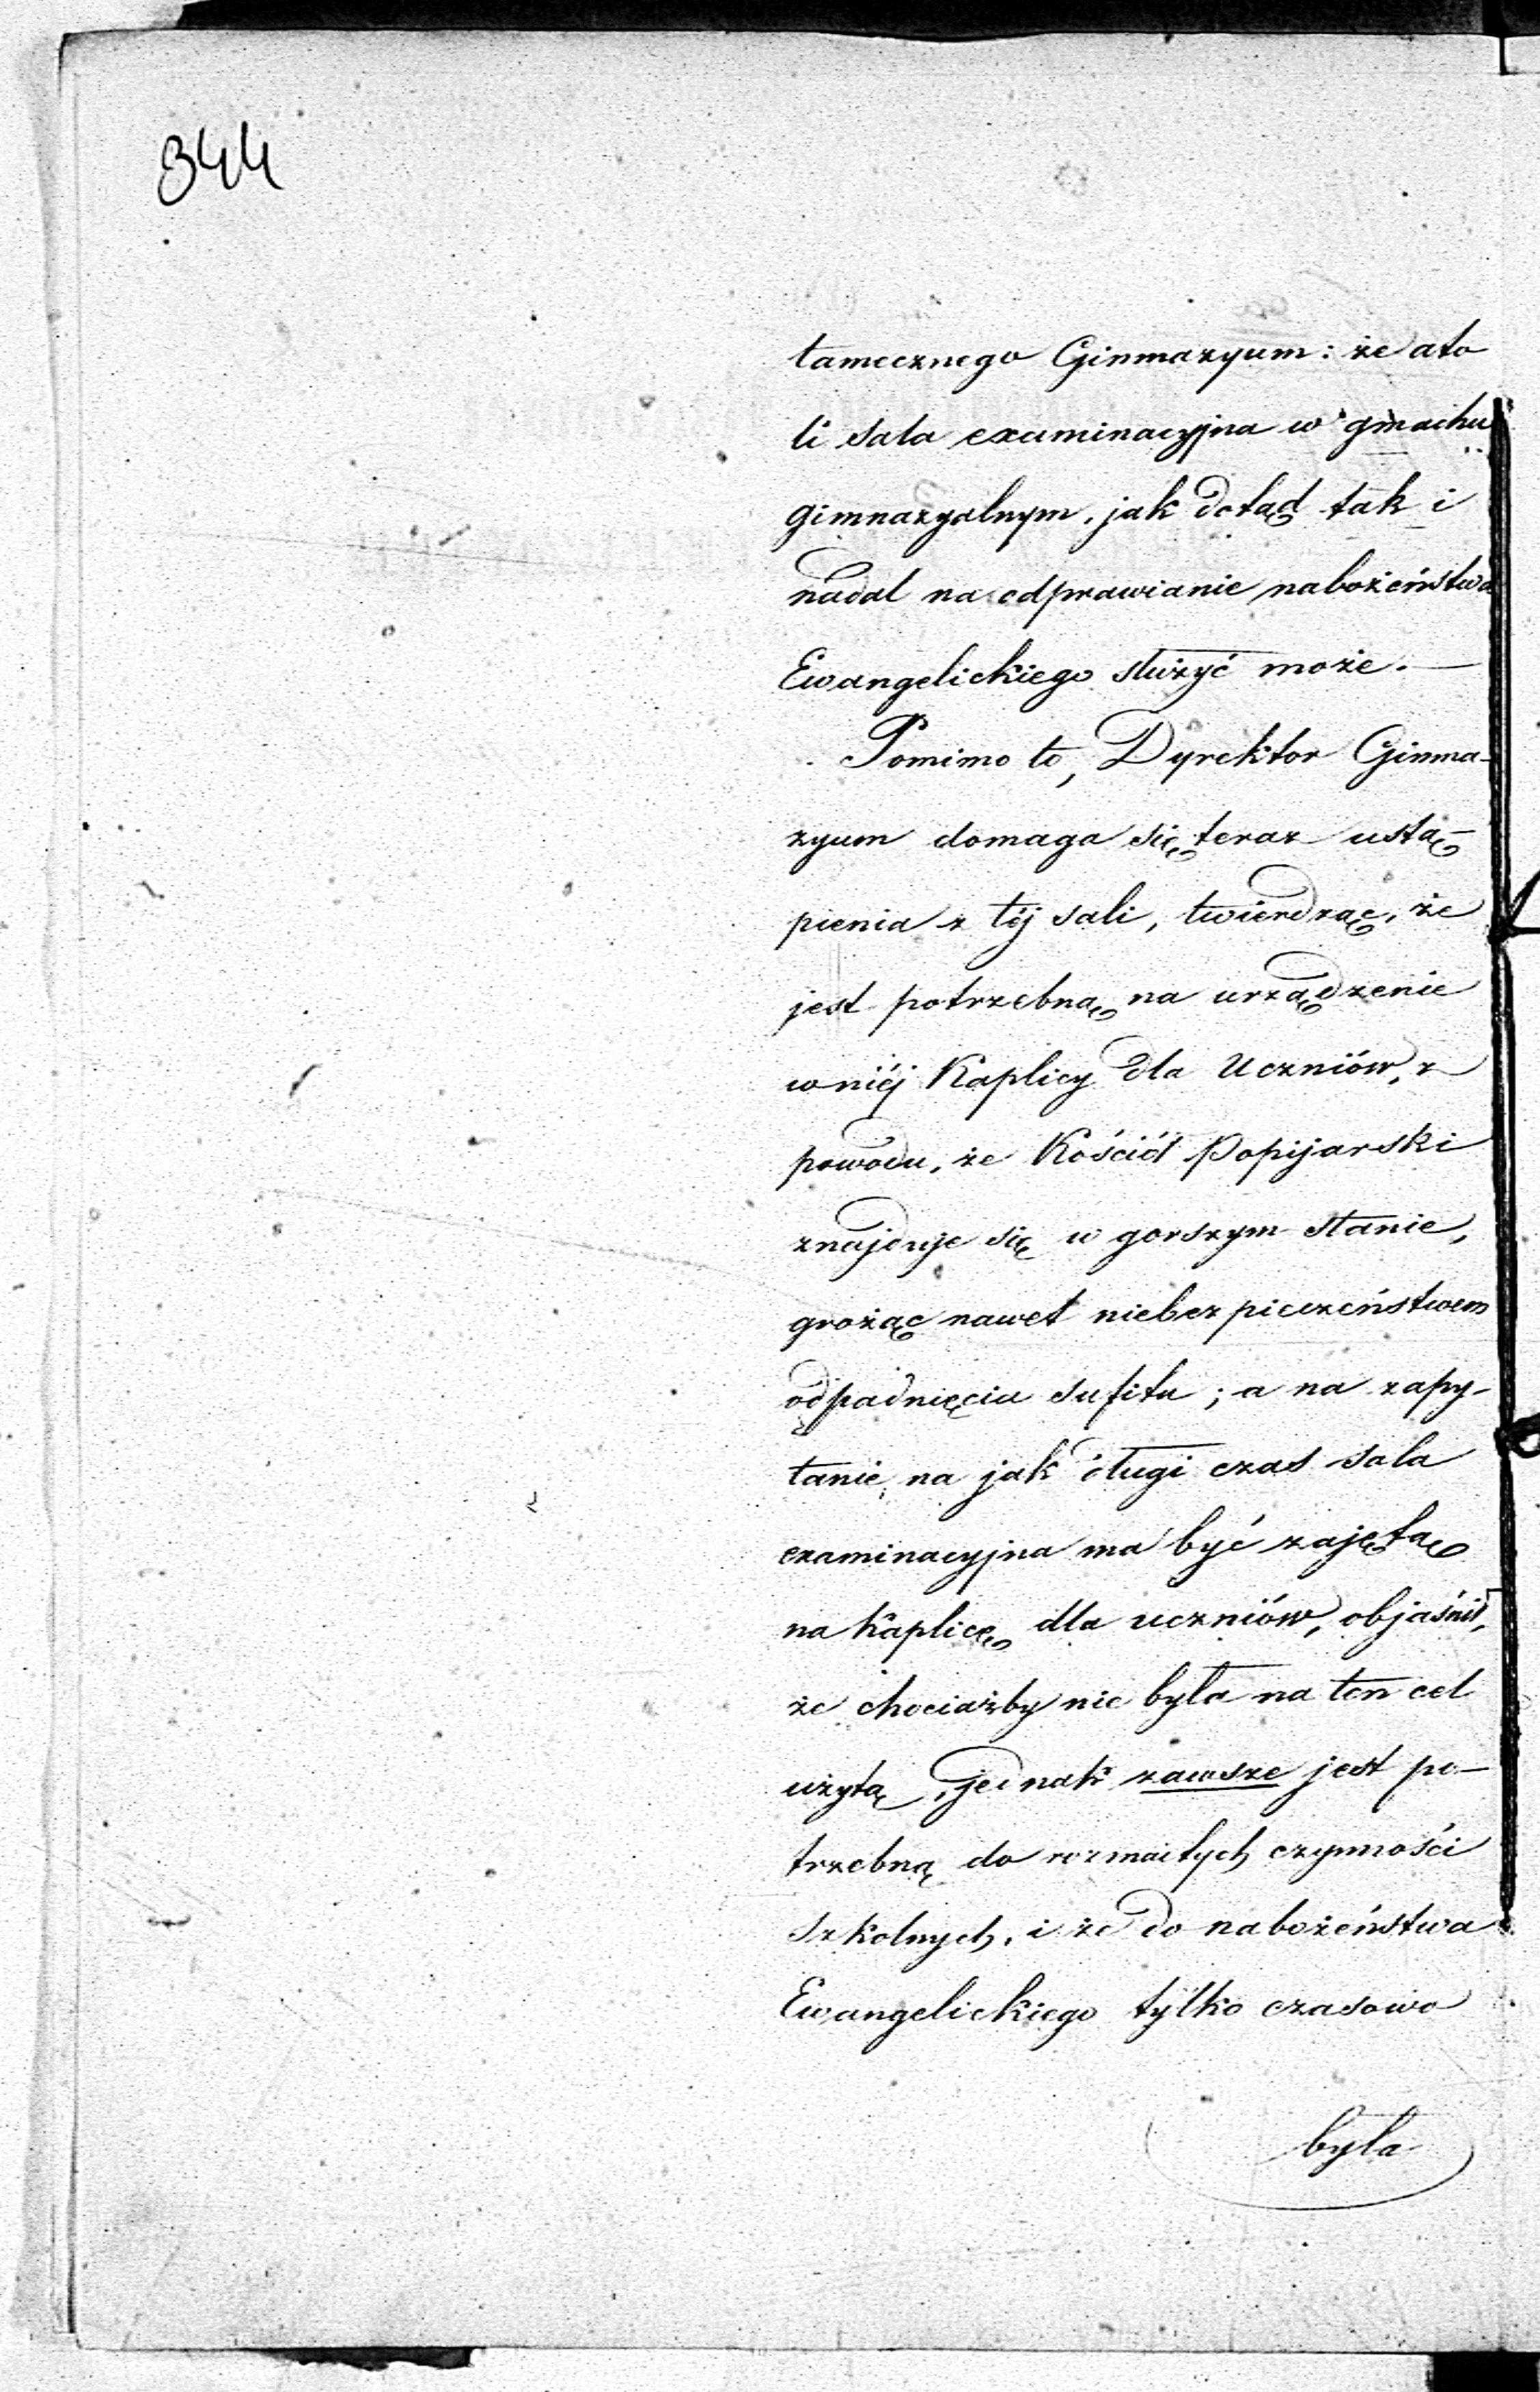 344
tamecznego Ginmazyum: że ato
li sala examinacyjna w gmachu
gimnazyalnym, jak dotąd tak i
nadal na odprawianie nabożeństwa
Ewangelickiego służyć może. —
Pomimo to, Dyrektor Ginma-
zyum domaga się teraz ustą-
pienia z téj sali, twierdząc, że
jest potrzebną na urządzenie
w niéj Kaplicy dla Uczniów, z
powodu, że Kościół Popijarski
znajduje się w gorszym stanie,
grożąc nawet niebezpieczeństwem
odpadnięcia sufitu; a na zapy-
tanie, na jak długi czas sala
examinacyjna ma być zajętą
na kaplicę dla uczniów, objaśnił,
że chociażby nie była na ten cel
użytą, jednak zawsze jest po-
trzebną do rozmaitych czynności
szkolnych, i że do nabożeństwa
Ewangelickiego tylko czasowo
była